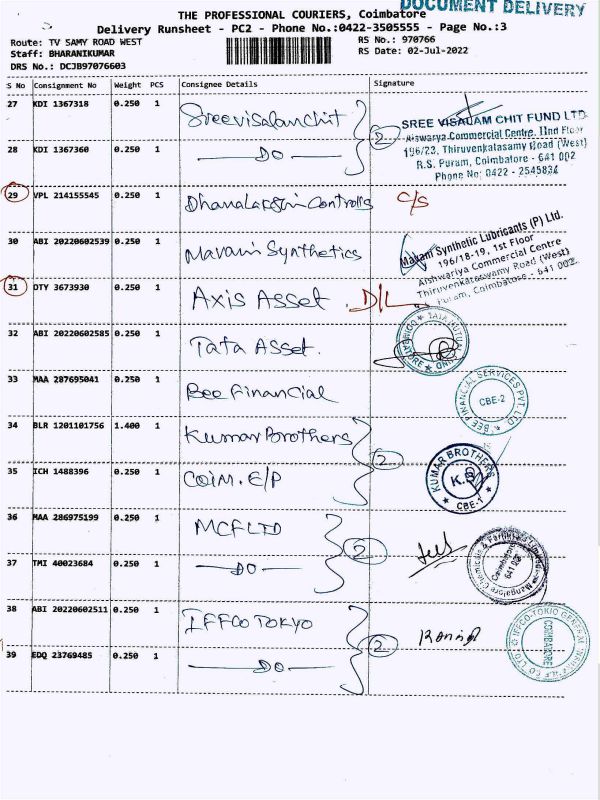 DOCUMENT DELIVERY
THE PROFESSIONAL COURIERS, Coimbatore
Delivery Runsheet - PC2 - Phone No.:0422-3505555 - Page No.:3
Route: TV SAMY ROAD WEST
RS No.: 970766
Staff: BHARANIKUMAR
RS Date: 02-Jul-2022
DRS No.: DCJB97076603
S No Consignment No Weight PCS Consignee Details Signature
27 KDI 1367318 0.250 1 Sreevisalamchit
2
SREE VISALAM CHIT FUND LTD
Aiswarya Commercial Centre, IInd Floor
196/23, Thiruvenkatasamy Road (West)
R.S. Puram, Coimbatore - 641 002
Phone No: 0422 - 2545834
28 KDI 1367360 0.250 1 DO
29 VPL 214155545 0.250 1 Dhanalakshmi Controlls C/S
30 ABI 20220602539 0.250 1 Mavani Synthetics
Mavani Synthetic Lubricants (P) Ltd.
196/18-19, 1st Floor
Aishwariya Commercial Centre
Thiruvenkataswamy Road (West)
Puram, Coimbatore - 641 002.
31 DTY 3673930 0.250 1 Axis Asset. D/L
32 ABI 20220602585 0.250 1 Tata Asset.
TATA MUTUAL FUND COIMBATORE
33 MAA 287695041 0.250 1 Bee Financial
BEE FINANCIAL SERVICES PVT. LTD
CBE-2
34 BLR 1201101756 1.400 1 Kumar Brothers
2
KUMAR BROTHERS
K.B
CBE-1
35 ICH 1488396 0.250 1 COIM. E/P
36 MAA 286975199 0.250 1 MCF LTD
2
Mangalore Chemicals & Fertilizers Limited
Coimbatore
641 002
37 TMI 40023684 0.250 1 DO
38 ABI 20220602511 0.250 1 IFFCO TOKYO
2
IFFCO-TOKIO GENERAL INSURANCE CO LTD
COIMBATORE
39 EDQ 23769485 0.250 1 DO